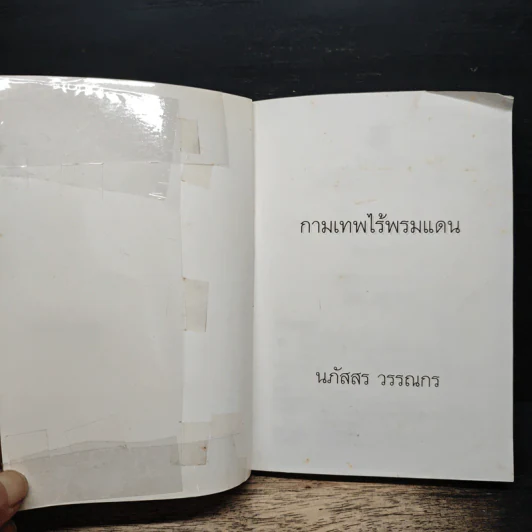 กามเทพไร้พรมแดน
นภัสสร วรรณกร